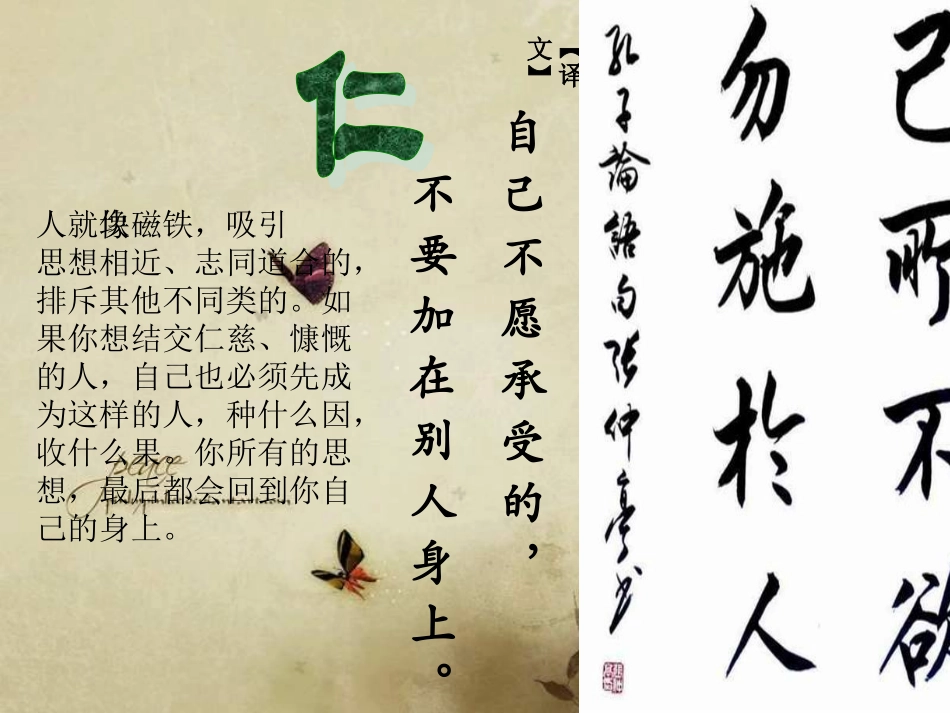 仁
【译
文】
自己不愿承受的，
不要加在别人身上。
人就像块磁铁，吸引
思想相近、志同道合的，
排斥其他不同类的。如
果你想结交仁慈、慷慨
的人，自己也必须先成
为这样的人，种什么因，
收什么果。你所有的思
想，最后都会回到你自
己的身上。
peace
己所不欲
勿施於人
孔子論語句張仲亭书